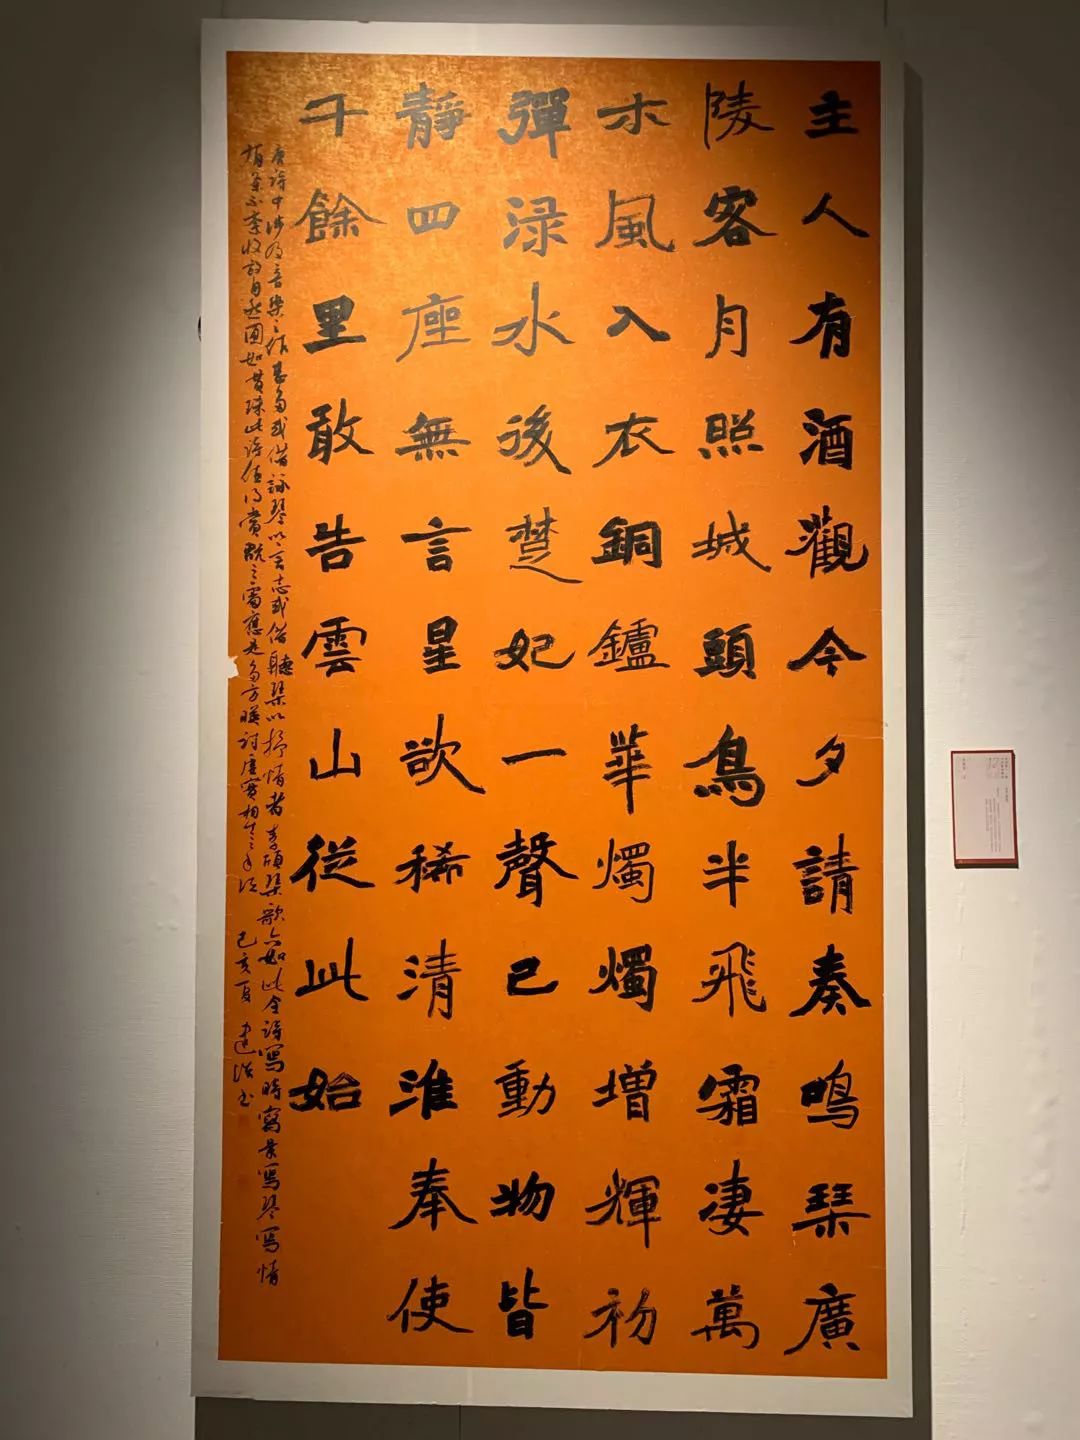 主人有酒觀今夕請奏鳴琹廣
陵客月照城頭鳥半飛霜凄萬
木風入衣銅鑪華燭燭增輝初
彈渌水後楚妃一聲已動物皆
靜四座無言星欲稀清淮奉使
千餘里敢告雲山從此始
唐詩中涉及音樂之作甚多或借詠琴以言志或借聽琹以抒情者李頎琹歌亦如此全詩寫時寫景寫琴寫情
收放自然圓如貫珠此詩值得賞翫之處應是多方映討虛實相生之手法 己亥夏 建 書